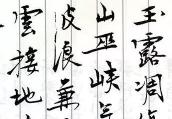 玉露凋
山巫峡
波浪兼
雲接地